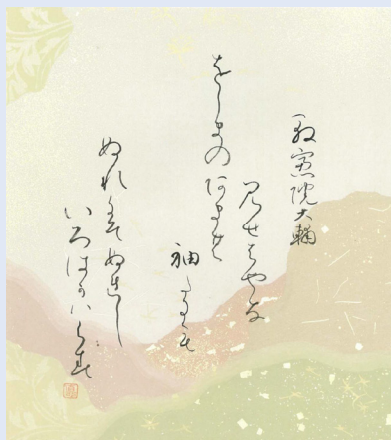 殷富門院大輔
見せはやな
をしまのあまの
袖たにも
ぬれにそぬれし
いろはかはらす